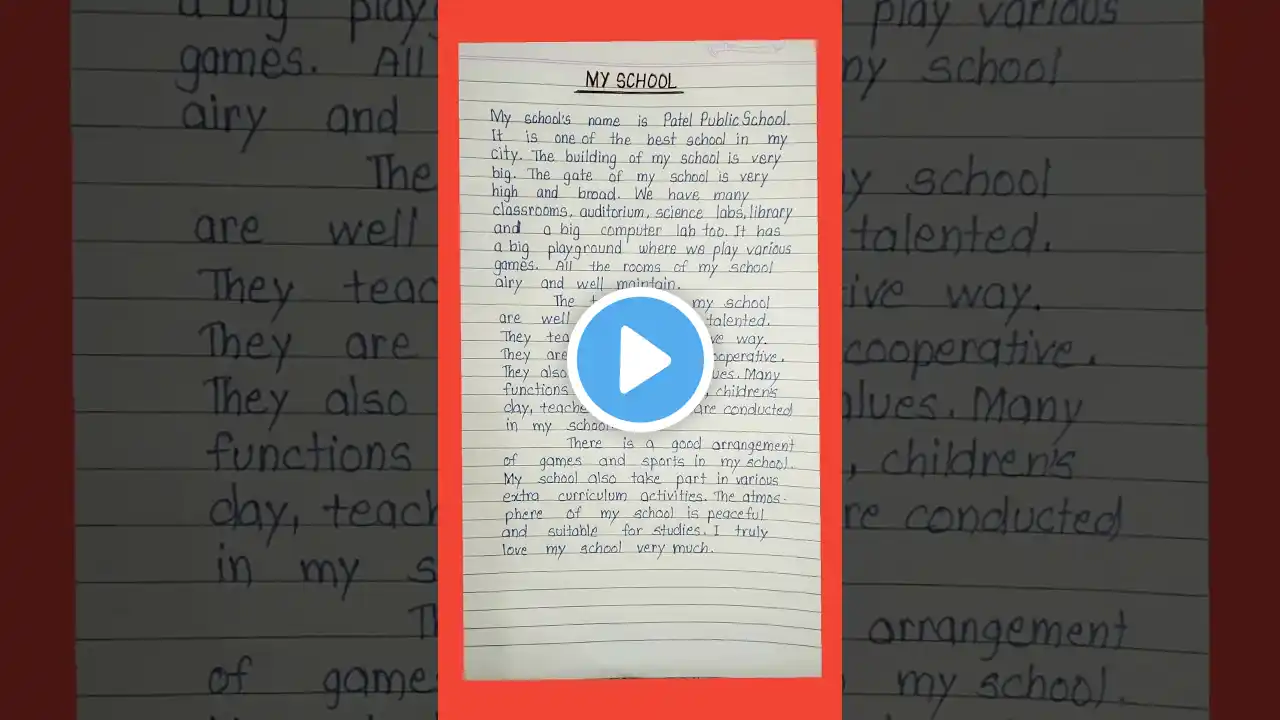 MY SCHOOL
My school's name is Patel Public School.
It is one of the best school in my
city. The building of my school is very
big. The gate of my school is very
high and broad. We have many
classrooms, auditorium, science labs, library
and a big computer lab too. It has
a big playground where we play various
games. All the rooms of my school
airy and well maintain.
The my school
are well talented.
They way.
They are cooperative.
They also Many
functions children's
day, are conducted
in my school.
There is a good arrangement
of games and sports in my school.
My school also take part in various
extra curriculum activities. The atmos-
phere of my school is peaceful
and suitable for studies. I truly
love my school very much.